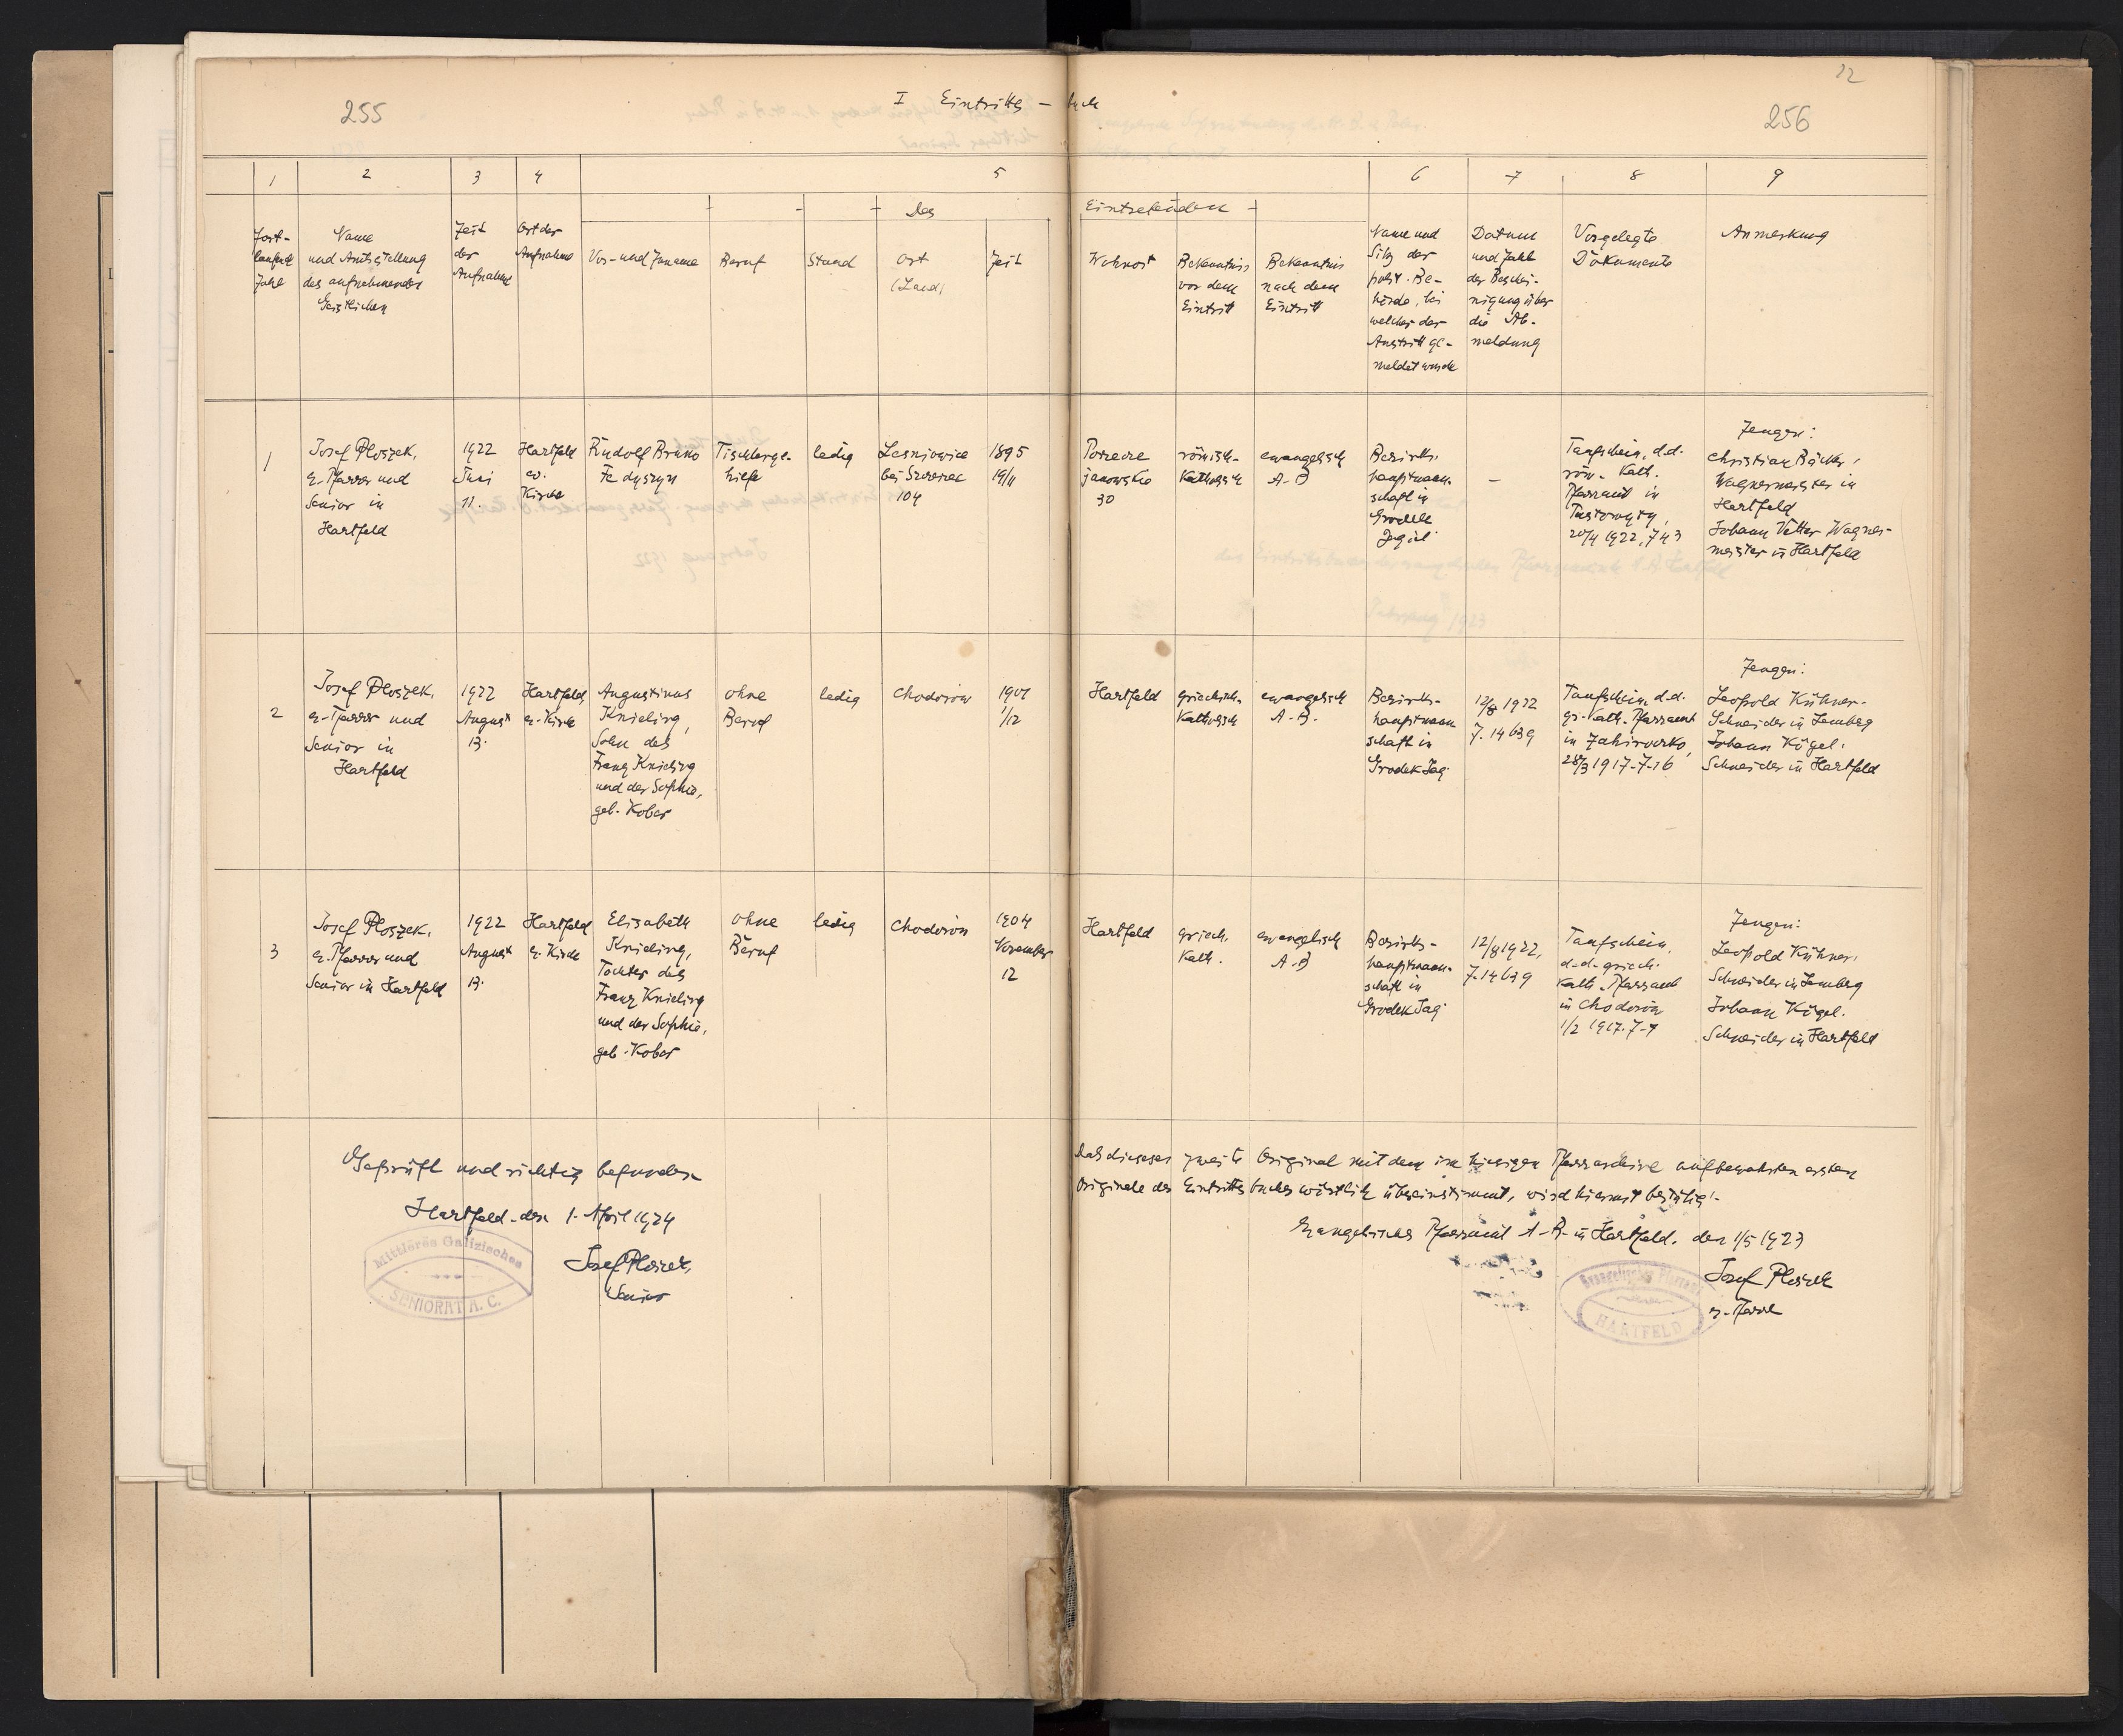 255
I Eintritts - buch
12
256
1 2 3 4 5 6 7 8 9
Des Eintretenden
Fort-
laufende
Zahl
Name
und Amtsstellung
des aufnehmenden
Geistlichen
Zeit
der
Aufnahme
Ort der
Aufnahme
Vor- und Zuname
Beruf
Stand
Ort
(Land)
Zeit
Wohnort
Bekenntnis
vor dem
Eintritt
Bekenntnis
nach dem
Eintritt
Name und
Sitz der
polit. Be-
hörde, bei
welcher der
Austritt ge-
meldet wurde
Datum
und Zahl
der Beschei-
nigung über
die Ab-
meldung
Vorgelegte
Dokumente
Anmerkung
1
Josef Ploszek,
ev. Pfarrer und
Senior in
Hartfeld
1922
Juni
11.
Hartfeld
ev.
Kirche
Rudolf Bruno
Fedyszyn
Tischlerge-
hilfe
ledig
Lesniowice
bei Szczerzec
104
1895
19/11
Porzecze
janowskie
30
römisch-
Katholisch
evangelisch
A. B
Bezirks-
hauptmann-
schaft in
Grodek
Jagiel.
-
Taufschein, d.d.
röm. Kath.
Pfarramt in
20/4 1922, Z 43
Zeugen:
Christian Bäcker,
Wagnermeister in
Hartfeld
Johann Vetter Wagner-
meister in Hartfeld
2
Josef Ploszek,
ev. Pfarrer und
Senior in
Hartfeld
1922
August
13.
Hartfeld
ev. Kirche
Augustinus
Knieling,
Sohn des
Franz Knieling
und der Sophie,
geb. Kober
ohne
Beruf
ledig
Chodorow
1901
1/12
Hartfeld
griechisch-
Katholisch
evangelisch
A. B.
Bezirks-
hauptmann
schaft in
Grodek Jag.
12/8 1922
Z. 14639
Taufschein d.d.
gr. Kath. Pfarramt
in
28/3 1917. Z. 16
Zeugen:
Leopold Kühner.
Schneider in Lemberg
Johann Kögel.
Schneider in Hartfeld
3
Josef Ploszek,
ev. Pfarrer und
Senior in Hartfeld
1922
August
13.
Hartfeld
ev. Kirche
Elisabeth
Knieling,
Tochter des
Franz Knieling
und der Sophie,
geb. Kober
ohne
Beruf
ledig
Chodorow
1904
November
12
Hartfeld
griech.
Kath.
evangelisch
A. B
Bezirks-
hauptmann-
schaft in
Grodek Jag.
12/8 1922,
Z. 14639
Taufschein,
d.d. griech.
Kath. Pfarramt
in Chodorow
1/2 1917. Z. 7
Zeugen:
Leopold Kühner,
Schneider in Lemberg
Johann Kögel.
Schneider in Hartfeld
Geprüft und richtig befunden
Hartfeld, den 1. April 1924
Mittleres Galizisches
SENIORAT A. C.
Josef Ploszek,
Senior
Dass dieses zweite Original mit dem im hiesigen Pfarrarchive aufbewahrten ersten
Originale des Eintrittsbuches wörtlich übereinstimmt, wird hiermit bestätigt.
Evangelisches Pfarramt A. B. in Hartfeld. den 1/5 1923
Evangelisches Pfarramt
HARTFELD
Josef Ploszek
ev. Pfarrer